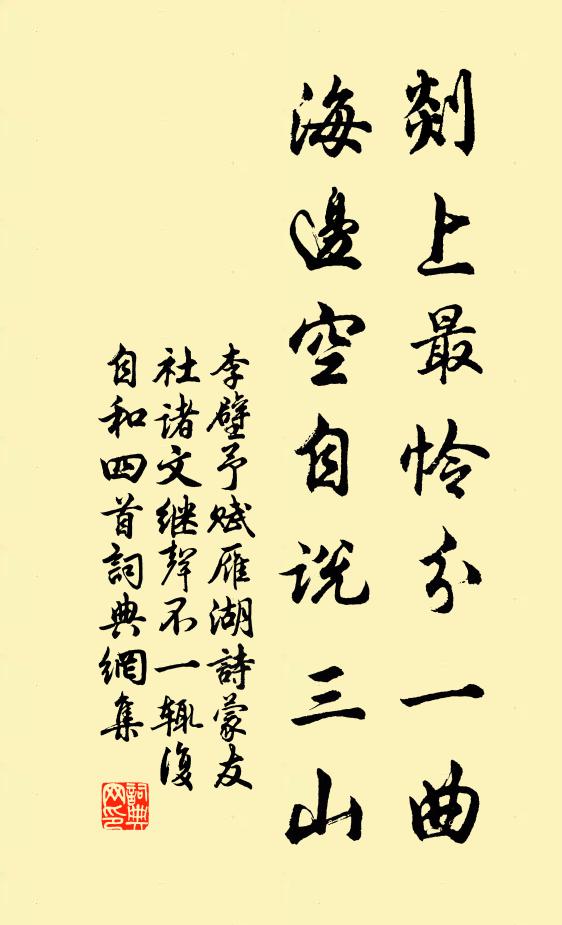 剡上最怜分一曲
海邊空自说三山
李壁予赋雁湖詩蒙友
社诸文继聲不一辄復
自和四首詞典網集
詞典
网印